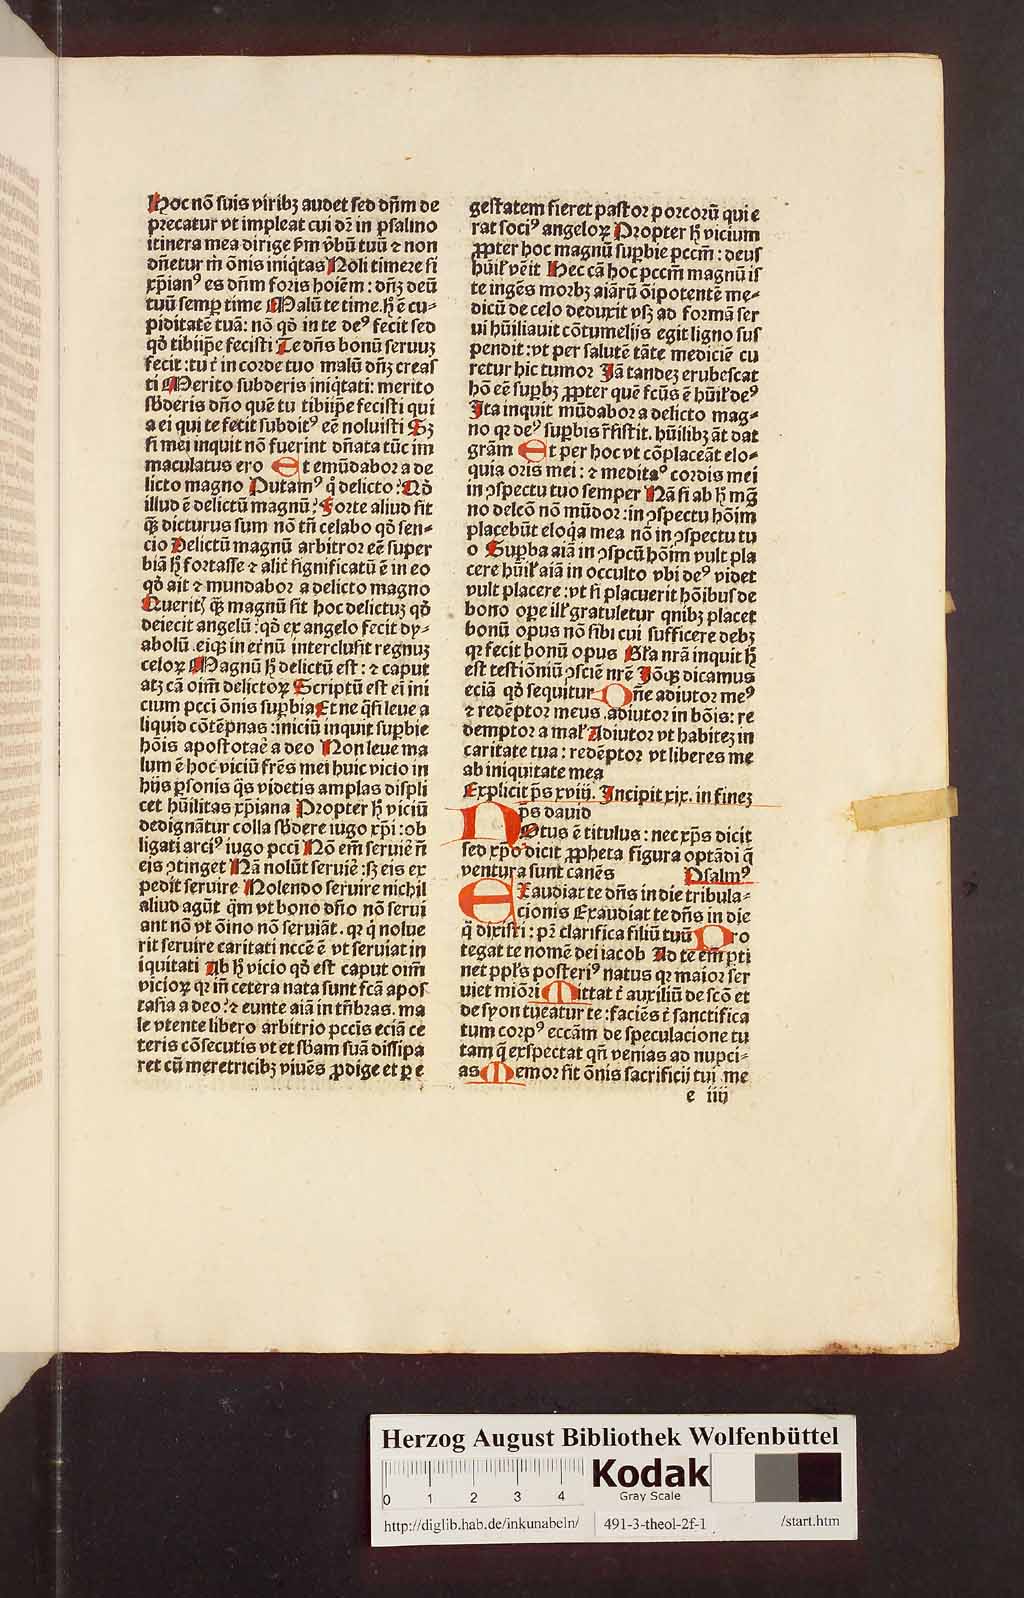 Hoc nō suis viribꝫ audet sed dn̄m de
precatur vt impleat cui dr̄ in psalmo
itinera mea dirige ẜm v̄bū tuū ⁊ non
dn̄etur m̄ ōnis iniq̄tas Noli timere si
xp̄ianꝰ es dn̄m foris hoiēm : dn̄ꝫ deū
tuū semꝑ time Malū te time. h̄ ē cu⸗
piditatē tuā: nō qd̄ in te deꝰ fecit sed
qd̄ tibiip̄e fecisti Te dn̄s bonū seruuꝫ
fecit : tu t̄ in corde tuo malū dn̄ꝫ creas
ti Merito subderis iniq̄tati: merito
sb̄deris dn̄o quē tu tibiip̄e fecisti qui
a ei qui te fecit subditꝰ eē noluisti Sꝫ
si mei inquit nō fuerint dn̄ata tūc im
maculatus ero Et emūdabor a de
licto magno Putamꝰ q̄ delicto? Qd̄
illud ē delictū magnū? Forte aliud sit
qꝫ̄ dicturus sum nō tn̄ celabo qd̄ sen⸗
cio Delictū magnū arbitror eē super
biā h̄ fortasse ⁊ alit̄ significatū ē in eo
qd̄ ait ⁊ mundabor a delicto magno
Querit̄ qꝫ̄ magnū sit hoc delictuꝫ qd̄
deiecit angelū : qd̄ ex angelo fecit dy⸗
abolū .eiqꝫ in et̄nū interclusit regnuꝫ
celoꝝ Magnū h̄ delictū est : ⁊ caput
atꝫ cā oim̄ delictoꝝ Scriptū est ei ini
cium pcc̄i ōnis suꝑbia Et ne q̄si leue a
liquid cōtēpnas : iniciū inquit suꝑbie
hōis apostotaē a deo Non leue ma
lum ē hoc viciū fr̄es mei huic vicio in
hijs ꝑsonis q̄s videtis amplas displi
cet hūilitas xp̄iana Propter h̄ viciū
dedignātur colla sb̄dere iugo xp̄i : ob
ligati arciꝰ iugo pcc̄i Nō em̄ seruiē n̄
eis ↄtinget Nā nolūt seruiē : sꝫ eis ex
pedit seruire Nolendo seruire nichil
aliud agūt q̄m vt bono dn̄o nō serui
ant nō vt ōino nō seruiāt. qꝛ q̄ nolue
rit seruire caritati ncc̄e ē vt seruiat in
iquitati Ab h̄ vicio qd̄ est caput oim̄
vicioꝝ qꝛ in̄ cetera nata sunt fc̄a apos
tasia a deo : ⁊ eunte aiā in tn̄bras. ma
le vtente libero arbitrio pcc̄is eciā ce
teris cōsecutis vt et sb̄am suā dissipa
ret cū meretricibꝫ viuēs ꝓdige et ꝑ e
gestatem fieret pastor porcorū qui e
rat sociꝰ angeloꝝ Propter h̄ vicium
ꝓpter hoc magnū suꝑbie pccm̄ : deus
hūil' vēit Hec cā hoc pccm̄ magnū is
te ingēs morbꝫ aiārū ōipotentē me⸗
dicū de celo deduxit vsꝫ ad formā ser
ui hūiliauit cōtumelijs egit ligno sus
pendit : vt per salutē tāte mediciē cu
retur hic tumor Jā tandeꝫ erubescat
hō eē suꝑbꝫ ꝓpter quē fc̄us ē hūil' deꝰ
Jta inquit mūdabor a delicto mag⸗
no qꝛ deꝰ suꝑbis r̄sistit. hūilibꝫ āt dat
grām Et per hoc vt cōplaceāt elo⸗
quia oris mei : ⁊ meditaꝰ cordis mei
in ↄspectu tuo semper Nā si ab h̄ mḡ
no delc̄o nō mūdor : in ↄspectu hōim
placebūt eloq̄a mea nō in ↄspectu tu
o Suꝑba aiā in ↄspcū hōim vult pla
cere hūil' aiā in occulto vbi deꝰ videt
vult placere : vt si placuerit hōibus de
bono oꝑe ill' gratuletur qnibꝫ placet
bonū opus nō sibi cui sufficere debꝫ
qꝛ fecit bonū opus Gl̄a nr̄a inquit h̄
est testiōniū ↄsciē nr̄e Jōqꝫ dicamus
eciā qd̄ sequitur Dn̄e adiutor meꝰ
⁊ redēptor meus .adiutor in bōis: re
demptor a mal' Adiutor vt habiteꝫ in
caritate tua : redēptor vt liberes me
ab iniquitate mea
Explicit ps̄ xviij. Jncipit xix. in fineꝫ
ps̄ dauid
Notus ē titulus : nec xp̄s dicit
sed xp̄o dicit ꝓpheta figura optādi q̄
ventura sunt canēs Psalmꝰ
Exaudiat te dn̄s in die tribula⸗
cionis Exaudiat te dn̄s in die
q̄ dixisti : pꝛ̄ clarifica filiū tuū Pro
tegat te nomē dei iacob Ad te em̄ ꝑti
net ppl's posteriꝰ natus qꝛ maior ser
uiet miōri Mittat t̄ auxiliū de sc̄o et
de syon tueatur te : faciēs t̄ sanctifica
tum corpꝰ ecc̄am de speculacione tu
tam q̄ exspectat qn̄ venias ad nupci⸗
as Memor sit ōnis sacrificij tui .me
e iiij
Herzog August Bibliothek Wolfenbüttel
0 1 2 3 4
Kodak
Gray Scale
http://diglib.hab.de/inkunabeln/ 491-3-theol-2f-1 /start.htm